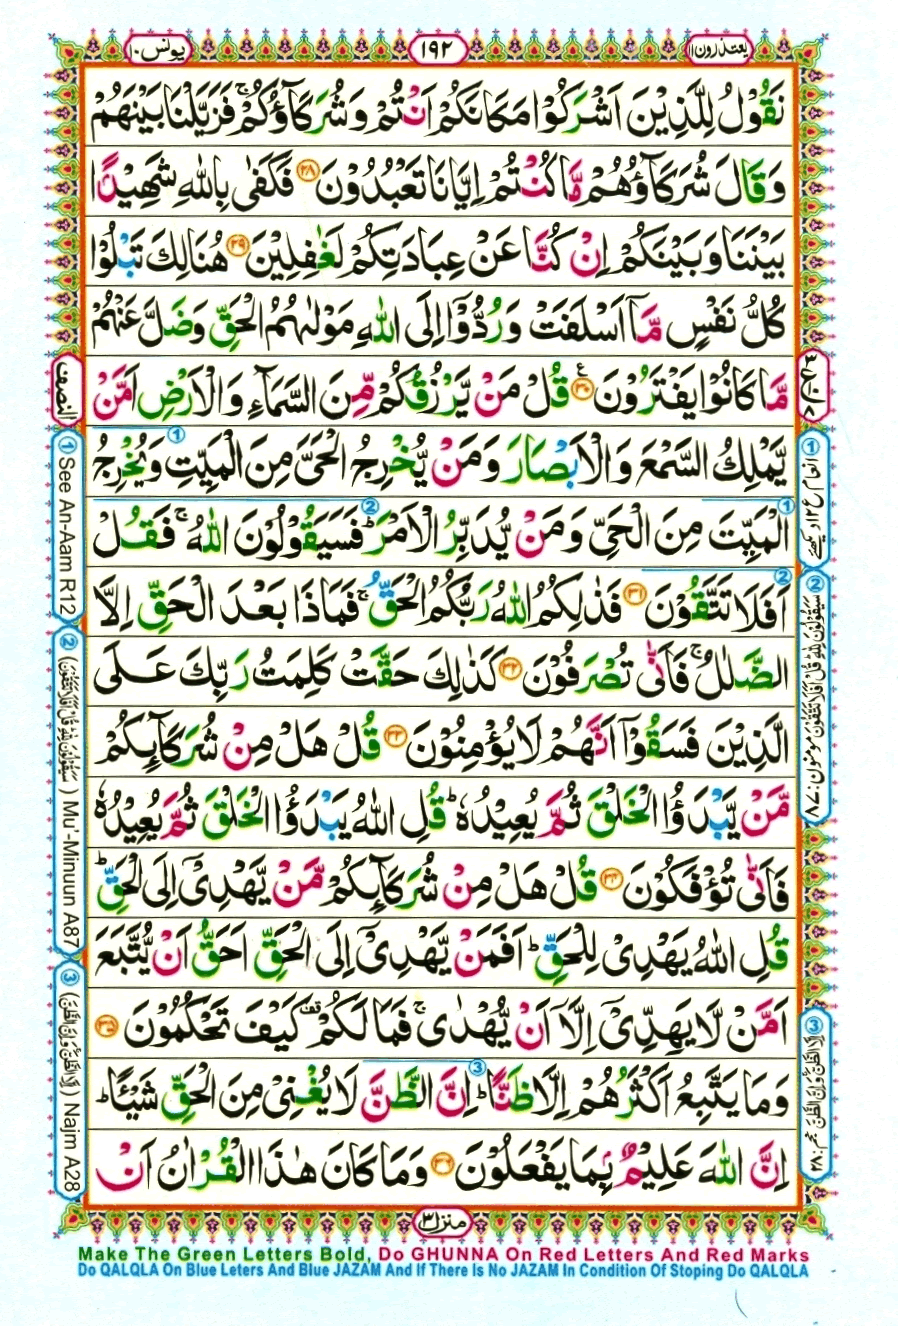 یعتذرون ۱۱
۱۹۲
یونس ۱۰
نَقُوْلُ لِلَّذِیْنَ اَشْرَكُوْا مَكَانَكُمْ اَنْتُمْ وَشُرَكَآؤُكُمْ ۚ فَزَیَّلْنَا بَیْنَهُمْ
وَقَالَ شُرَكَآؤُهُمْ مَّا كُنْتُمْ اِیَّانَا تَعْبُدُوْنَ ﴿۲۸﴾ فَكَفٰی بِاللّٰهِ شَهِیْدًۢا
بَیْنَنَا وَبَیْنَكُمْ اِنْ كُنَّا عَنْ عِبَادَتِكُمْ لَغٰفِلِیْنَ ﴿۲۹﴾ هُنَالِكَ تَبْلُوْا
كُلُّ نَفْسٍ مَّاۤ اَسْلَفَتْ وَرُدُّوْۤا اِلَی اللّٰهِ مَوْلٰىهُمُ الْحَقِّ وَضَلَّ عَنْهُمْ
مَّا كَانُوْا یَفْتَرُوْنَ ﴿۳۰﴾ ع قُلْ مَنْ یَّرْزُقُكُمْ مِّنَ السَّمَآءِ وَالْاَرْضِ اَمَّنْ
یَّمْلِكُ السَّمْعَ وَالْاَبْصَارَ وَمَنْ یُّخْرِجُ الْحَیَّ مِنَ الْمَیِّتِ وَیُخْرِجُ
الْمَیِّتَ مِنَ الْحَیِّ وَمَنْ یُّدَبِّرُ الْاَمْرَ ؕ فَسَیَقُوْلُوْنَ اللّٰهُ ۚ فَقُلْ
اَفَلَا تَتَّقُوْنَ ﴿۳۱﴾ فَذٰلِكُمُ اللّٰهُ رَبُّكُمُ الْحَقُّ ۚ فَمَاذَا بَعْدَ الْحَقِّ اِلَّا
الضَّلٰلُ ۚ فَاَنّٰی تُصْرَفُوْنَ ﴿۳۲﴾ كَذٰلِكَ حَقَّتْ كَلِمَتُ رَبِّكَ عَلَی
الَّذِیْنَ فَسَقُوْۤا اَنَّهُمْ لَا یُؤْمِنُوْنَ ﴿۳۳﴾ قُلْ هَلْ مِنْ شُرَكَآىِٕكُمْ
مَّنْ یَّبْدَؤُا الْخَلْقَ ثُمَّ یُعِیْدُهٗ ؕ قُلِ اللّٰهُ یَبْدَؤُا الْخَلْقَ ثُمَّ یُعِیْدُهٗ
فَاَنّٰی تُؤْفَكُوْنَ ﴿۳۴﴾ قُلْ هَلْ مِنْ شُرَكَآىِٕكُمْ مَّنْ یَّهْدِیْۤ اِلَی الْحَقِّ ؕ
قُلِ اللّٰهُ یَهْدِیْ لِلْحَقِّ ؕ اَفَمَنْ یَّهْدِیْۤ اِلَی الْحَقِّ اَحَقُّ اَنْ یُّتَّبَعَ
اَمَّنْ لَّا یَهِدِّیْۤ اِلَّاۤ اَنْ یُّهْدٰی ۚ فَمَا لَكُمْ ۫ كَیْفَ تَحْكُمُوْنَ ﴿۳۵﴾
وَمَا یَتَّبِعُ اَكْثَرُهُمْ اِلَّا ظَنًّا ؕ اِنَّ الظَّنَّ لَا یُغْنِیْ مِنَ الْحَقِّ شَیْـًٔا ؕ
اِنَّ اللّٰهَ عَلِیْمٌۢ بِمَا یَفْعَلُوْنَ ﴿۳۶﴾ وَمَا كَانَ هٰذَا الْقُرْاٰنُ اَنْ
النصف
① See An-Aam R12
② (سَیَقُوْلُوْنَ لِلّٰهِ قُلْ اَفَلَا تَتَّقُوْنَ) Mu'-Minuun A87
③ (اِلَّا الظَّنَّ وَاِنَّ الظَّنَّ) Najm A28
① انعام ع ۱۲ دیکھئے
② سَیَقُوْلُوْنَ لِلّٰهِ قُلْ اَفَلَا تَتَّقُوْنَ مومنون: ۸۷
③ اِلَّا الظَّنَّ وَاِنَّ الظَّنَّ نجم: ۲۸
منزل ۳
Make The Green Letters Bold, Do GHUNNA On Red Letters And Red Marks
Do QALQLA On Blue Leters And Blue JAZAM And If There Is No JAZAM In Condition Of Stoping Do QALQLA